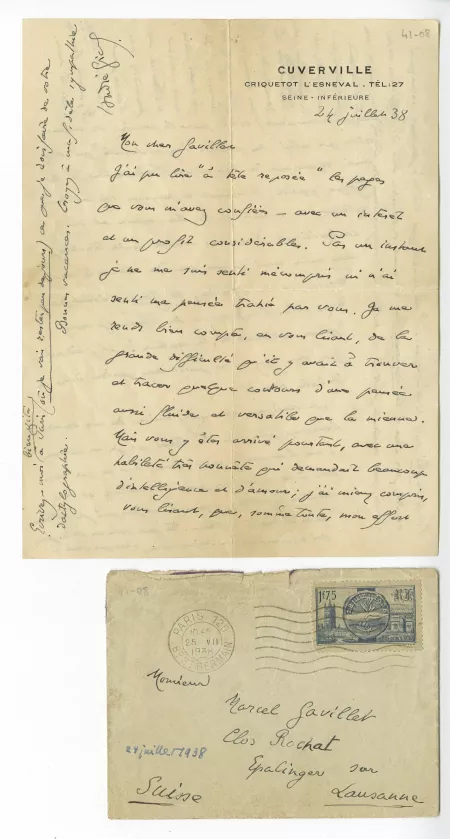 41-08
CUVERVILLE
CRIQUETOT L'ESNEVAL . TÉL: 27
SEINE - INFÉRIEURE
24 juillet 38
Mon cher Gavillet
J'ai pu lire "à tête reposée" les pages
que vous m'avez confiées — avec un intérêt
et un profit considérables. Pas un instant
je ne me suis senti mécompris ni n'ai
senti ma pensée trahie par vous. Je me
rends bien compte, en vous lisant, de la
grande difficulté qu'il y avait à trouver
et tracer quelque contours d'une pensée
aussi fluide et versatile que la mienne.
Mais vous y êtes arrivé pourtant, avec une
habileté très honnête qui demandait beaucoup
d'intelligence et d'amour; j'ai mieux compris,
vous lisant, que, somme toute, mon effort
Ecrivez-moi à (où je vais rester
que je dois faire de votre
dactylographie.
Bonnes vacances. Croyez à ma fidèle sympathie
André Gide
41-08
PARIS 120
25 VII
1938
Bd St GERMAIN
1f75
Monsieur
Marcel Gavillet
Clos Rochat
Epalinges sur
Lausanne
Suisse
24 juillet 1938